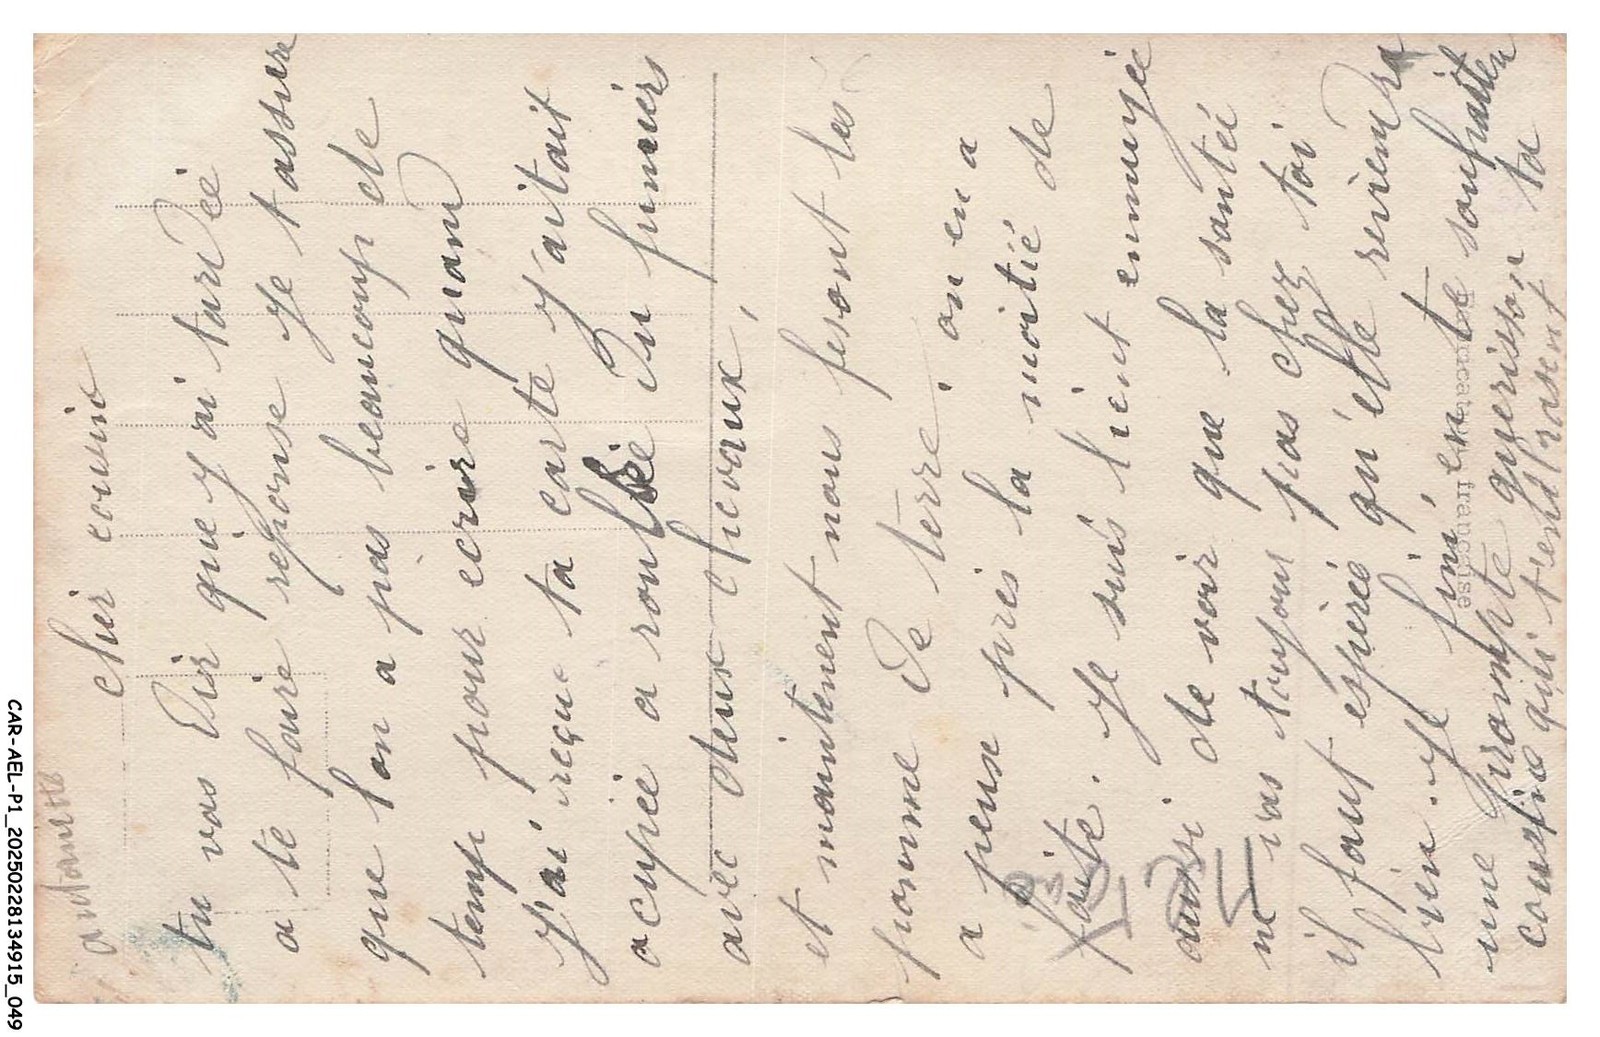 antoinette
cher cousin
tu vas dir que j ai tardée
a te faire reponse je t assure
que l on a pas beaucoup de
temp pour ecrire quand
J'ai reçue ta carte J'aitait
acupée a roulée du fumiers
avec deux chevaux,
et maintenent nous fesont les
pomme de terre, on en a
a peux près la moitié de
faite. Je suis bient ennuyée
aussi de voir que la santée
ne vas toujour pas chez toi
il faut espereé qu'elle reviendra
bien. Je fini, en te souhaiten
une prompte guerisson ta
cousine qui t'embrasent
française
CAR-AEL-P1_20250228134915_049